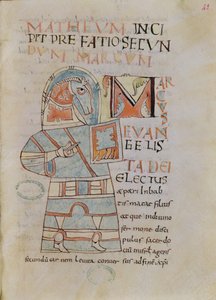 MATHEUM INCI
PIT PREFATIO SECUN
DUM MARCUM
MAR
C
US
EVAN
GELIS
TA DEI
ELECTUS
& petri inbab
tismate filius
atque indiuino
sermone disci
pulus sacerdo
agens
secundu carnem leuita conuer
sus adfidē xpi